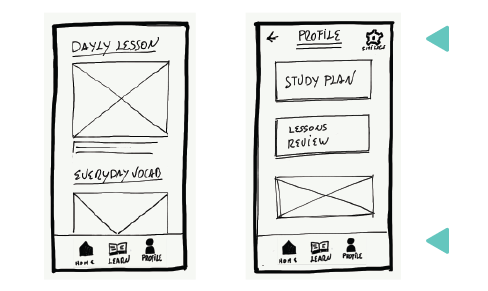 DAYLY LESSON
EVERYDAY VOCAB
HOME LEARN PROFILE
PROFILE
STUDY PLAN
LESSONS
REVIEW
HOME LEARN PROFILE